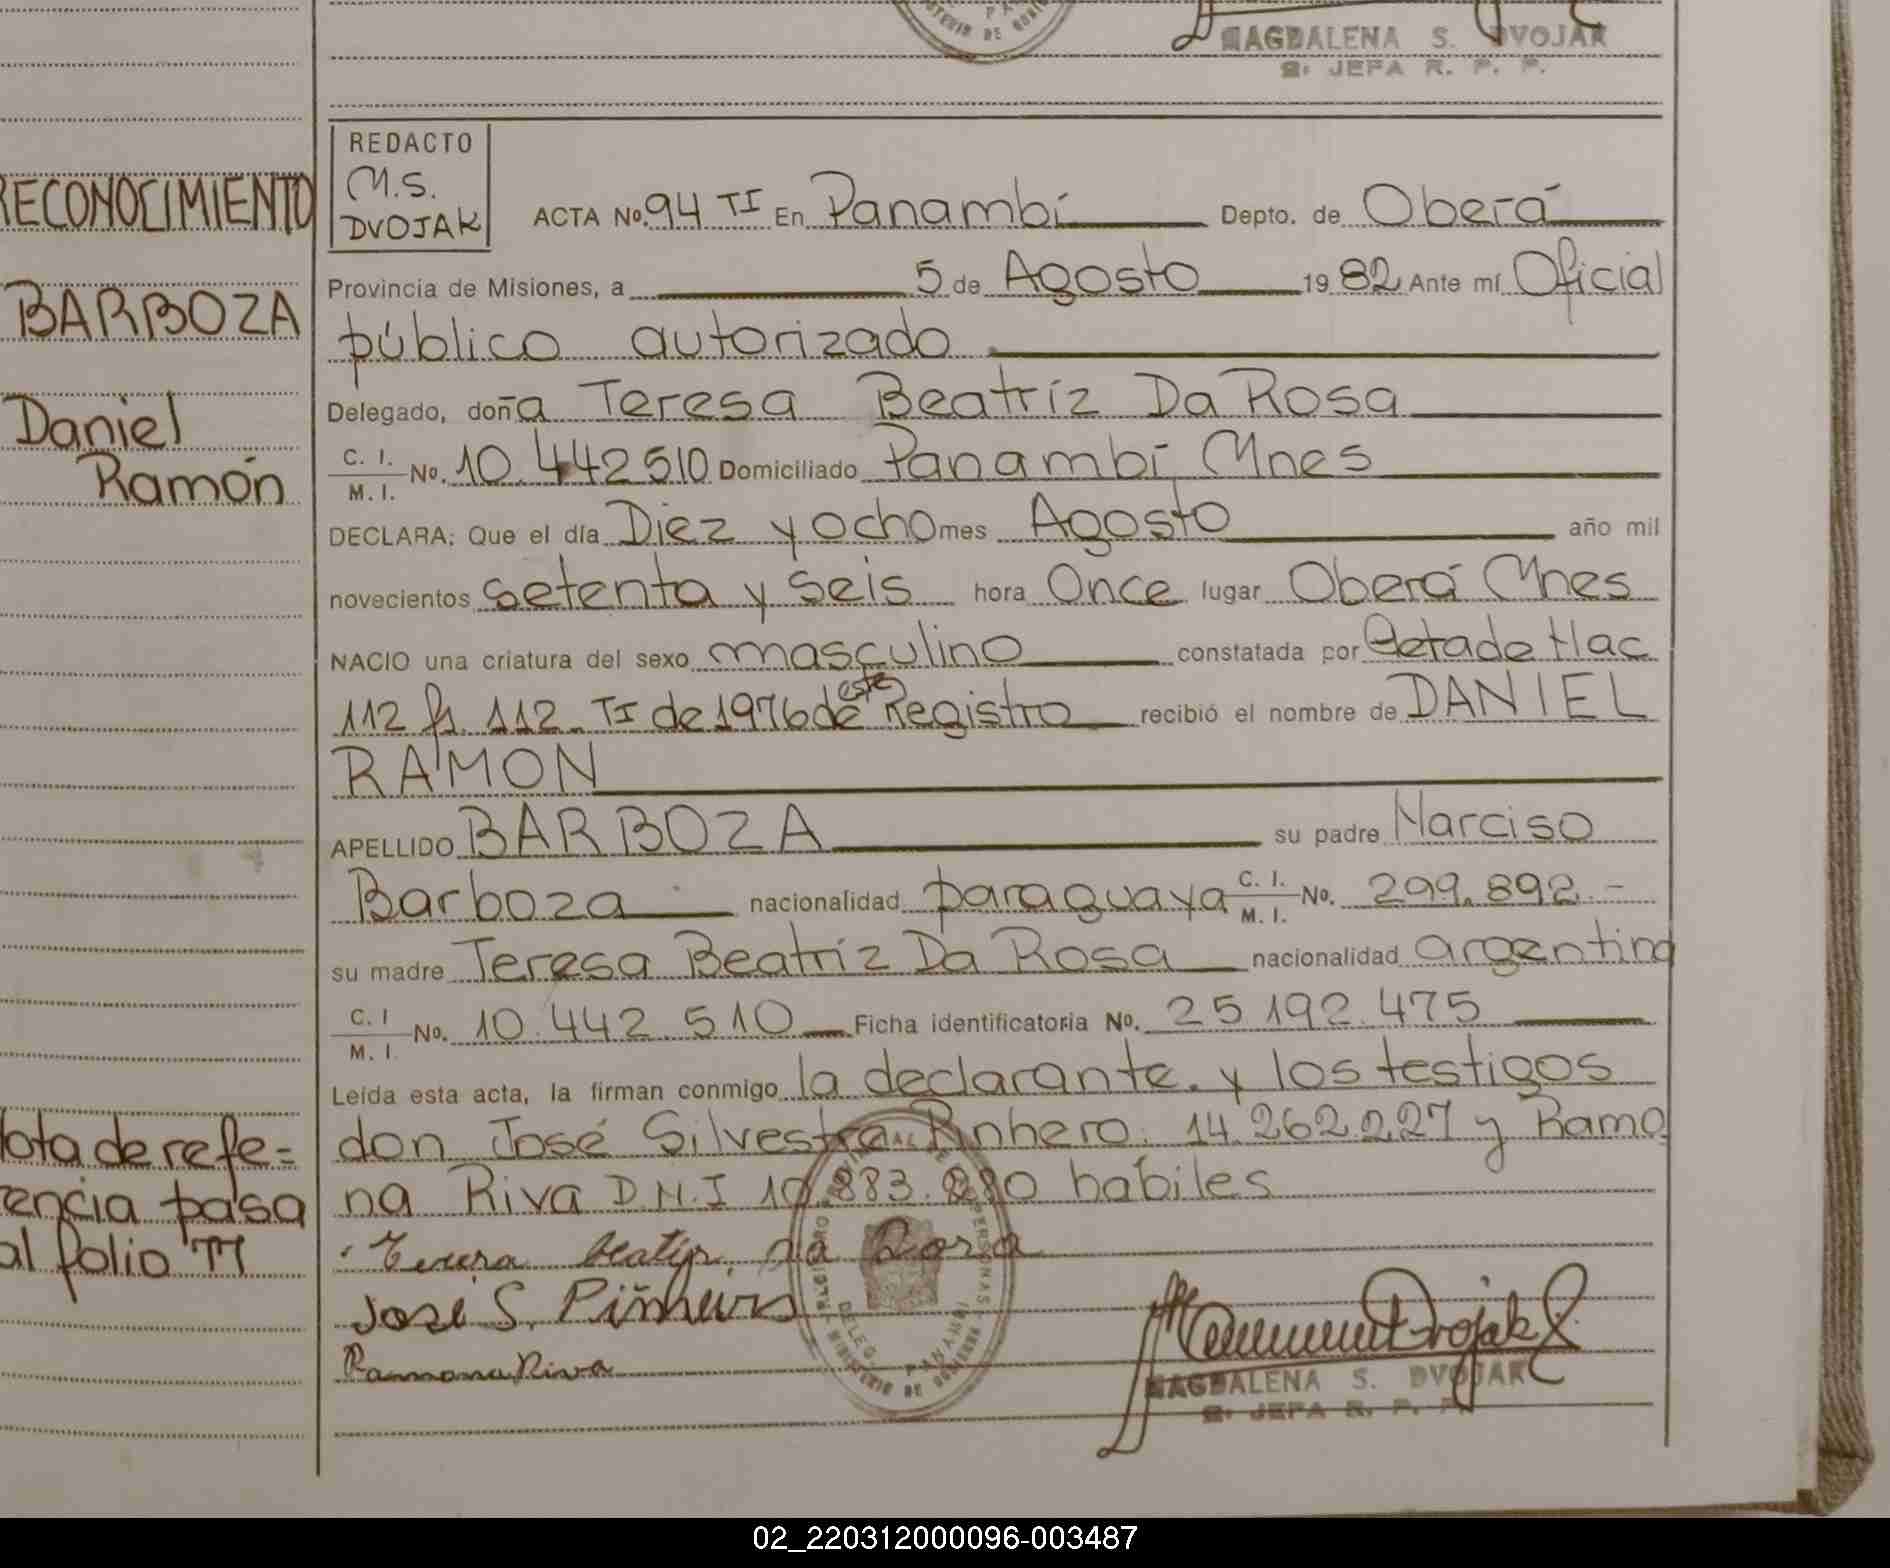 MAGDALENA S. DVOJAK
2. JEFA R. P. P.
RECONOCIMIENTO
BARBOZA
Daniel
Ramón
REDACTO
M.S.
DVOJAK
ACTA No. 94 TI En Panambí Depto. de Oberá
Provincia de Misiones, a 5 de Agosto 1982 Ante mí Oficial
público autorizado
Delegado, doña Teresa Beatríz Da Rosa
C. I. M. I. No. 10.442510 Domiciliado Panambí Mnes
DECLARA: Que el día Diez y ocho mes Agosto año mil
novecientos setenta y seis hora Once lugar Oberá Mnes
NACIO una criatura del sexo masculino constatada por
112 fs. 112. TI de 1976 de este Registro recibió el nombre de DANIEL
RAMON
APELLIDO BARBOZA su padre Narciso
Barboza nacionalidad paraguaya C. I. M. I. No. 299.892.-
su madre Teresa Beatríz Da Rosa nacionalidad argentina
C. I M. I. No. 10.442.510 Ficha identificatoria No. 25 192.475
Leída esta acta, la firman conmigo la declarante. y los testigos
don José Silvestre Pinhero. 14.262.227 y Ramo
na Riva D.N.I habiles
Nota de refe=
rencia pasa
al folio
Teresa Beatriz da Rosa
José S. Piñheiro
Ramona Riva
MAGDALENA S. DVOJAK
2. JEFA R. P. P.
02_220312000096-003487